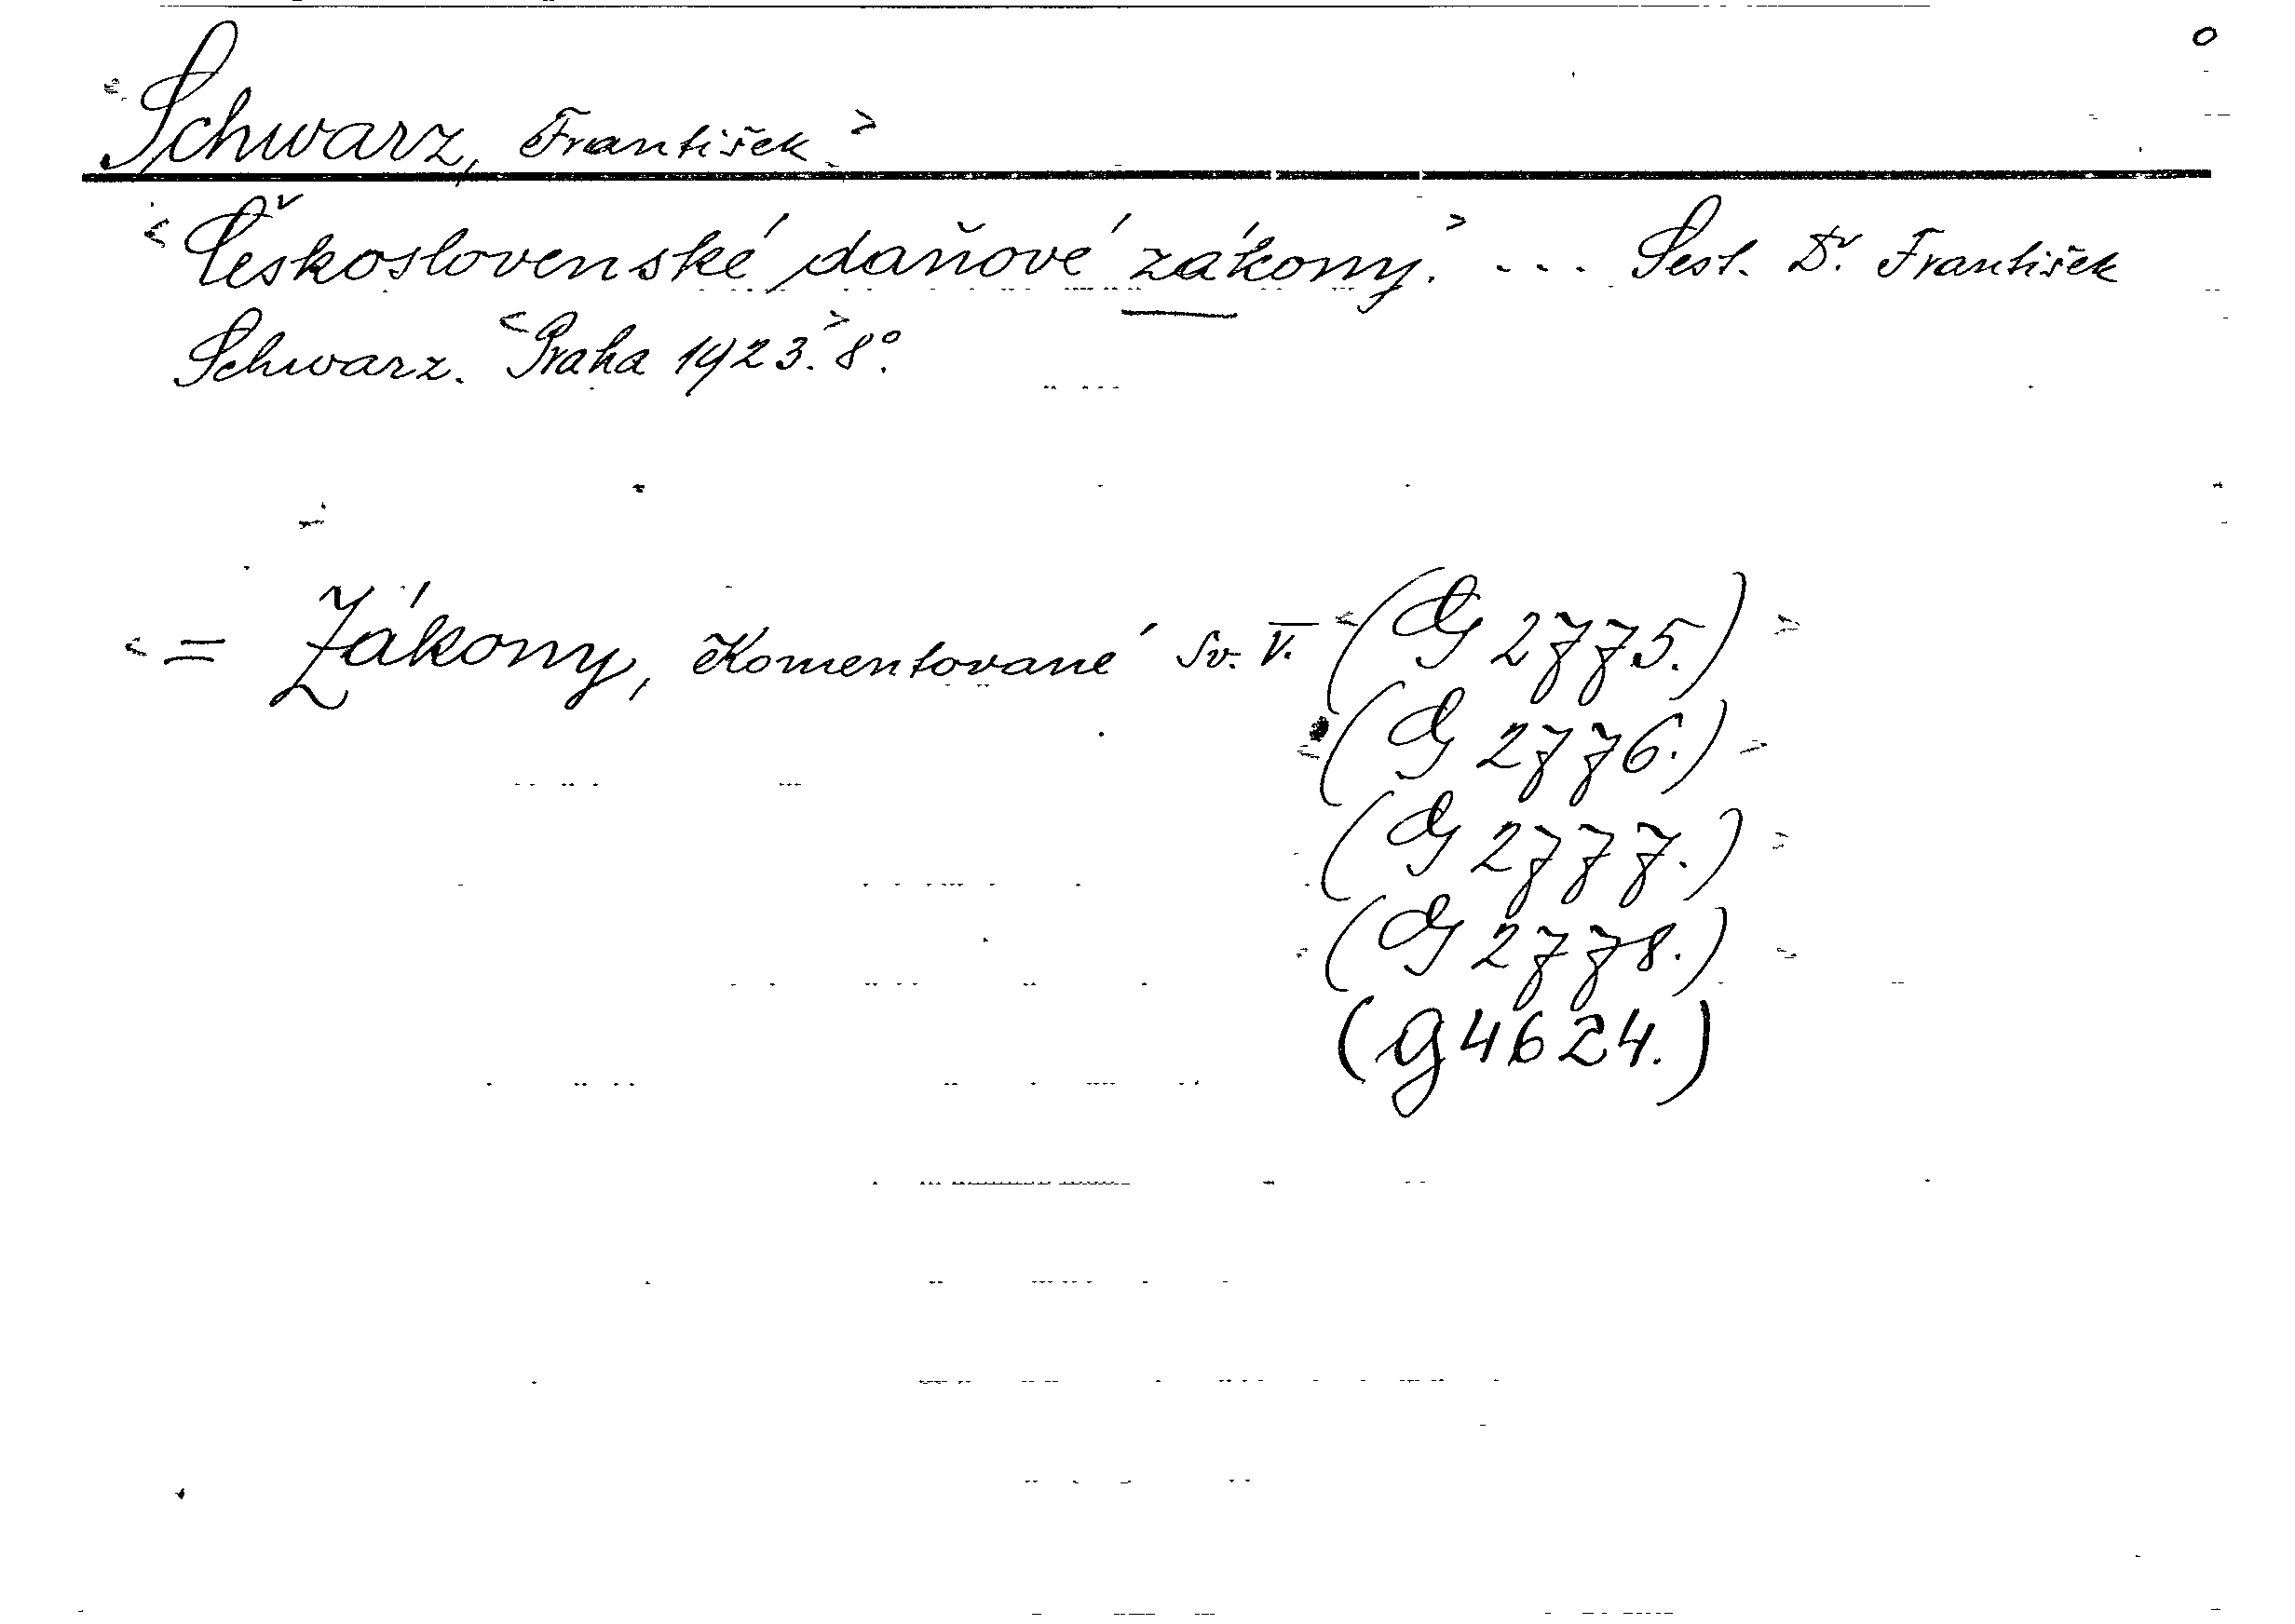 o
<Schwarz, František.>
<Československé daňové zákony.> ... Sest. Dr. František
Schwarz. <Praha 1923.> 8°.
<= Zákony, Komentované sv. V. <(G 2775.)>
<(G 2776.)>
(G 2777.)>
<(G 2778.)>
(G 4624.)